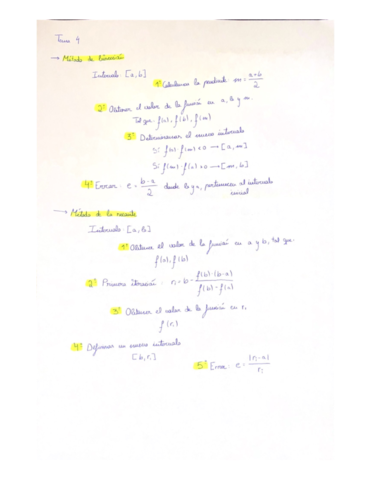 Tema 4
→ Método de bisección
Intervalo: [a, b]
1º Calculamos la pendiente: m = a+b / 2
2º Obtener el valor de la función en a, b y m.
Tal que: f(a), f(b), f(m)
3º Determinamos el nuevo intervalo
Si f(a) · f(m) < 0 → [a, m]
Si f(m) · f(b) < 0 → [m, b]
4º Error: e = b-a / 2 donde b y a, pertenecen al intervalo
inicial
→ Método de la secante
Intervalo: [a, b]
1º Obtener el valor de la función en a y b, tal que:
f(a), f(b)
2º Primera iteración: r₁ = b - f(b)·(b-a) / f(b) - f(a)
3º Obtener el valor de la función en r₁
f(r₁)
4º Definimos un nuevo intervalo
[b, r₁]
5º Error: e = |r₁-a| / r₁